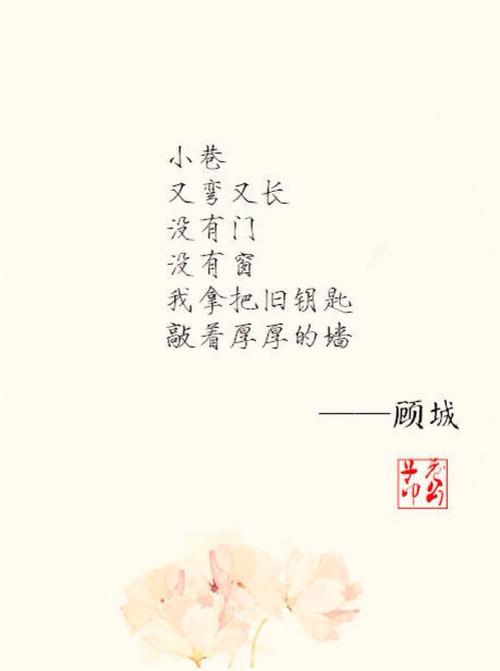 小巷
又弯又长
没有门
没有窗
我拿把旧钥匙
敲着厚厚的墙
——顾城